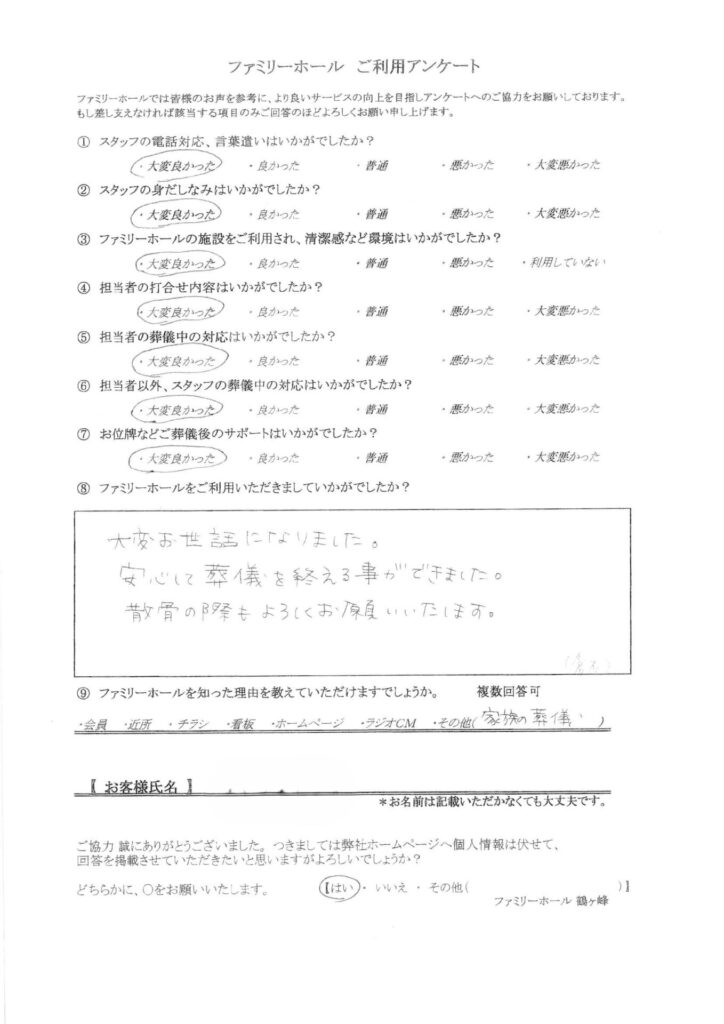 ファミリーホール ご利用アンケート
ファミリーホールでは皆様のお声を参考に、より良いサービスの向上を目指しアンケートへのご協力をお願いしております。
もし差し支えなければ該当する項目のみご回答のほどよろしくお願い申し上げます。
① スタッフの電話対応、言葉遣いはいかがでしたか？
・大変良かった ・良かった ・普通 ・悪かった ・大変悪かった
② スタッフの身だしなみはいかがでしたか？
・大変良かった ・良かった ・普通 ・悪かった ・大変悪かった
③ ファミリーホールの施設をご利用され、清潔感など環境はいかがでしたか？
・大変良かった ・良かった ・普通 ・悪かった ・利用していない
④ 担当者の打合せ内容はいかがでしたか？
・大変良かった ・良かった ・普通 ・悪かった ・大変悪かった
⑤ 担当者の葬儀中の対応はいかがでしたか？
・大変良かった ・良かった ・普通 ・悪かった ・大変悪かった
⑥ 担当者以外、スタッフの葬儀中の対応はいかがでしたか？
・大変良かった ・良かった ・普通 ・悪かった ・大変悪かった
⑦ お位牌などご葬儀後のサポートはいかがでしたか？
・大変良かった ・良かった ・普通 ・悪かった ・大変悪かった
⑧ ファミリーホールをご利用いただきましていかがでしたか？
大変お世話になりました。
安心して葬儀を終える事ができました。
散骨の際もよろしくお願いいたします。
⑨ ファミリーホールを知った理由を教えていただけますでしょうか。 複数回答可
・会員 ・近所 ・チラシ ・看板 ・ホームページ ・ラジオCM ・その他( 家族の葬儀 )
【 お客様氏名 】
＊お名前は記載いただかなくても大丈夫です。
ご協力 誠にありがとうございました。つきましては弊社ホームページへ個人情報は伏せて、
回答を掲載させていただきたいと思いますがよろしいでしょうか？
どちらかに、○をお願いいたします。 【はい ・ いいえ ・ その他( )】
ファミリーホール 鶴ヶ峰